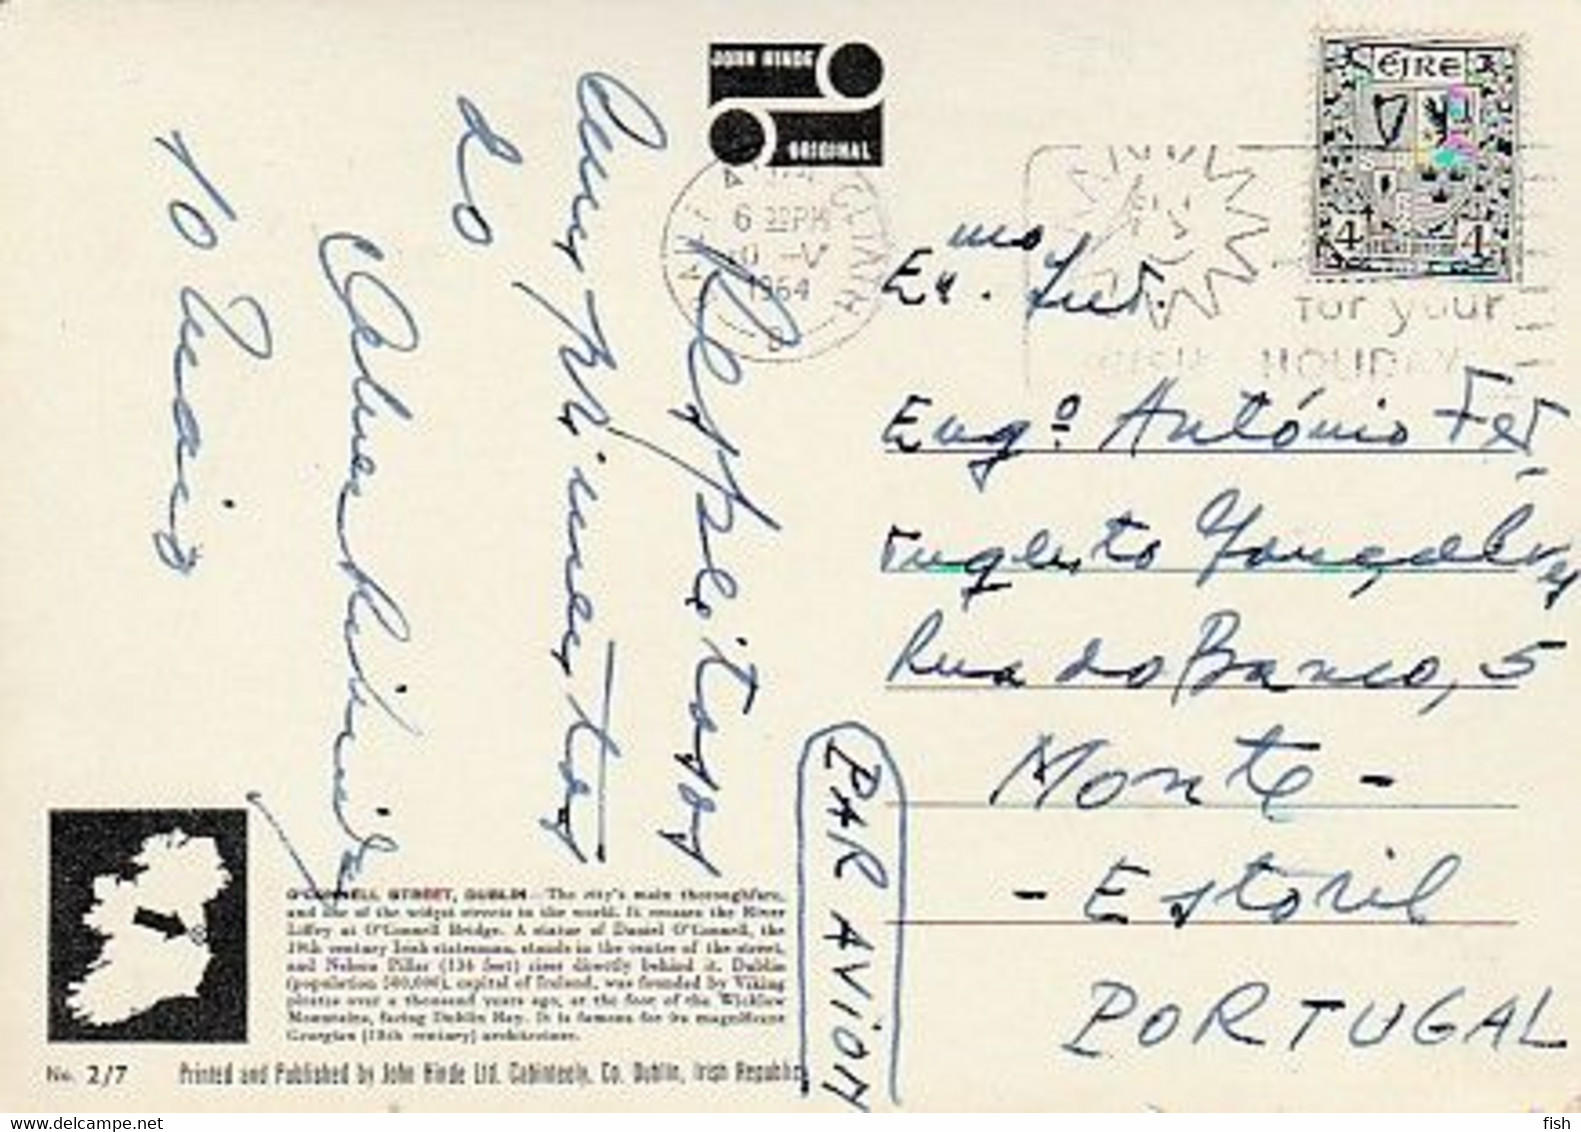 JOHN HINDE
ORIGINAL
ÉIRE
4 4
6 PM
V
1964
for your
HOLIDAY
Respeitosos
Cumprimentos
do
To Quais
Ex.mo Snr.
Engº António Fer-
Gonçalves
Rua do Banco, 5
Monte -
- Estoril
PORTUGAL
PAR AVION
O'CONNELL STREET, DUBLIN—The city's main thoroughfare,
and one of the widest streets in the world. It crosses the River
Liffey at O'Connell Bridge. A statue of Daniel O'Connell, the
19th century Irish statesman, stands in the centre of the street,
and Nelson Pillar (134 feet) rises directly behind it. Dublin
(population 500,000), capital of Ireland, was founded by Viking
pirates over a thousand years ago, at the foot of the Wicklow
Mountains, facing Dublin Bay. It is famous for its magnificent
Georgian (18th century) architecture.
No. 2/7
Printed and Published by John Hinde Ltd. Cabinteely, Co. Dublin, Irish Republic
www.delcampe.net
fish